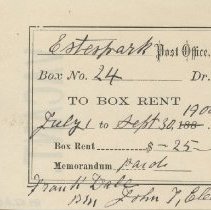 Estespark Post Office,
Box No. 24 Dr.
TO BOX RENT
July 1 to Sept 30, 188 190
Box Rent $-25-
Memorandum paid
Frank
John T, Cle